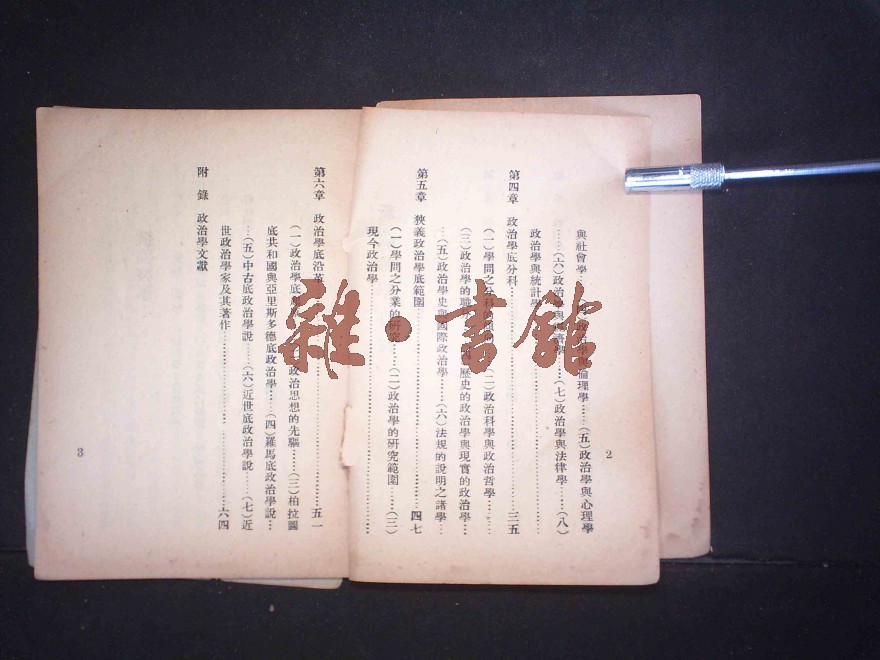 與社會學
政治學與倫理學……(五)政治學與心理學
……(六)政治學與
學……(七)政治學與法律學……(八)
政治學與統計學
第四章 政治學底分科……三五
(一)學問之分科的
(二)政治科學與政治哲學……
(三)政治學的職
歷史的政治學與現實的政治學…
…(五)政治學史與國際政治學…(六)法規的說明之諸學…
第五章 狹義政治學底範圍……四七
(一)學問之分業的研究……(二)政治學的研究範圍……(三)
現今政治學……
2
第六章 政治學底沿革……五一
(一)政治學底
政治思想的先驅……(三)柏拉圖
底共和國與亞里斯多德底政治學……(四)羅馬底政治學說…
…(五)中古底政治學說……(六)近世底政治學說……(七)近
世政治學家及其著作……六四
附錄 政治學文獻
3
雜·書館